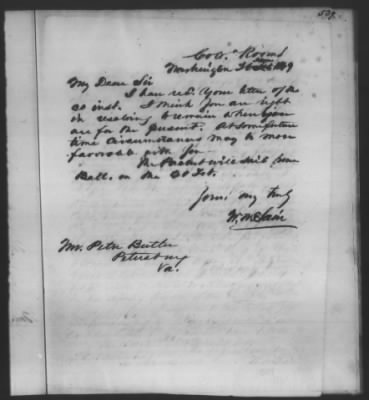 Colo. Rooms
Washington 26 1849
My Dear Sir
I have recd. your letter of the
20 inst. I think you are right
in resolving to remain where you
are for the present. At some future
time circumstances may be more
favorable with you
The Packet will sail from
Balt. on the Feb.
Yours very truly
W. McLain
Mr. Peter Butler
Petersburg
Va.